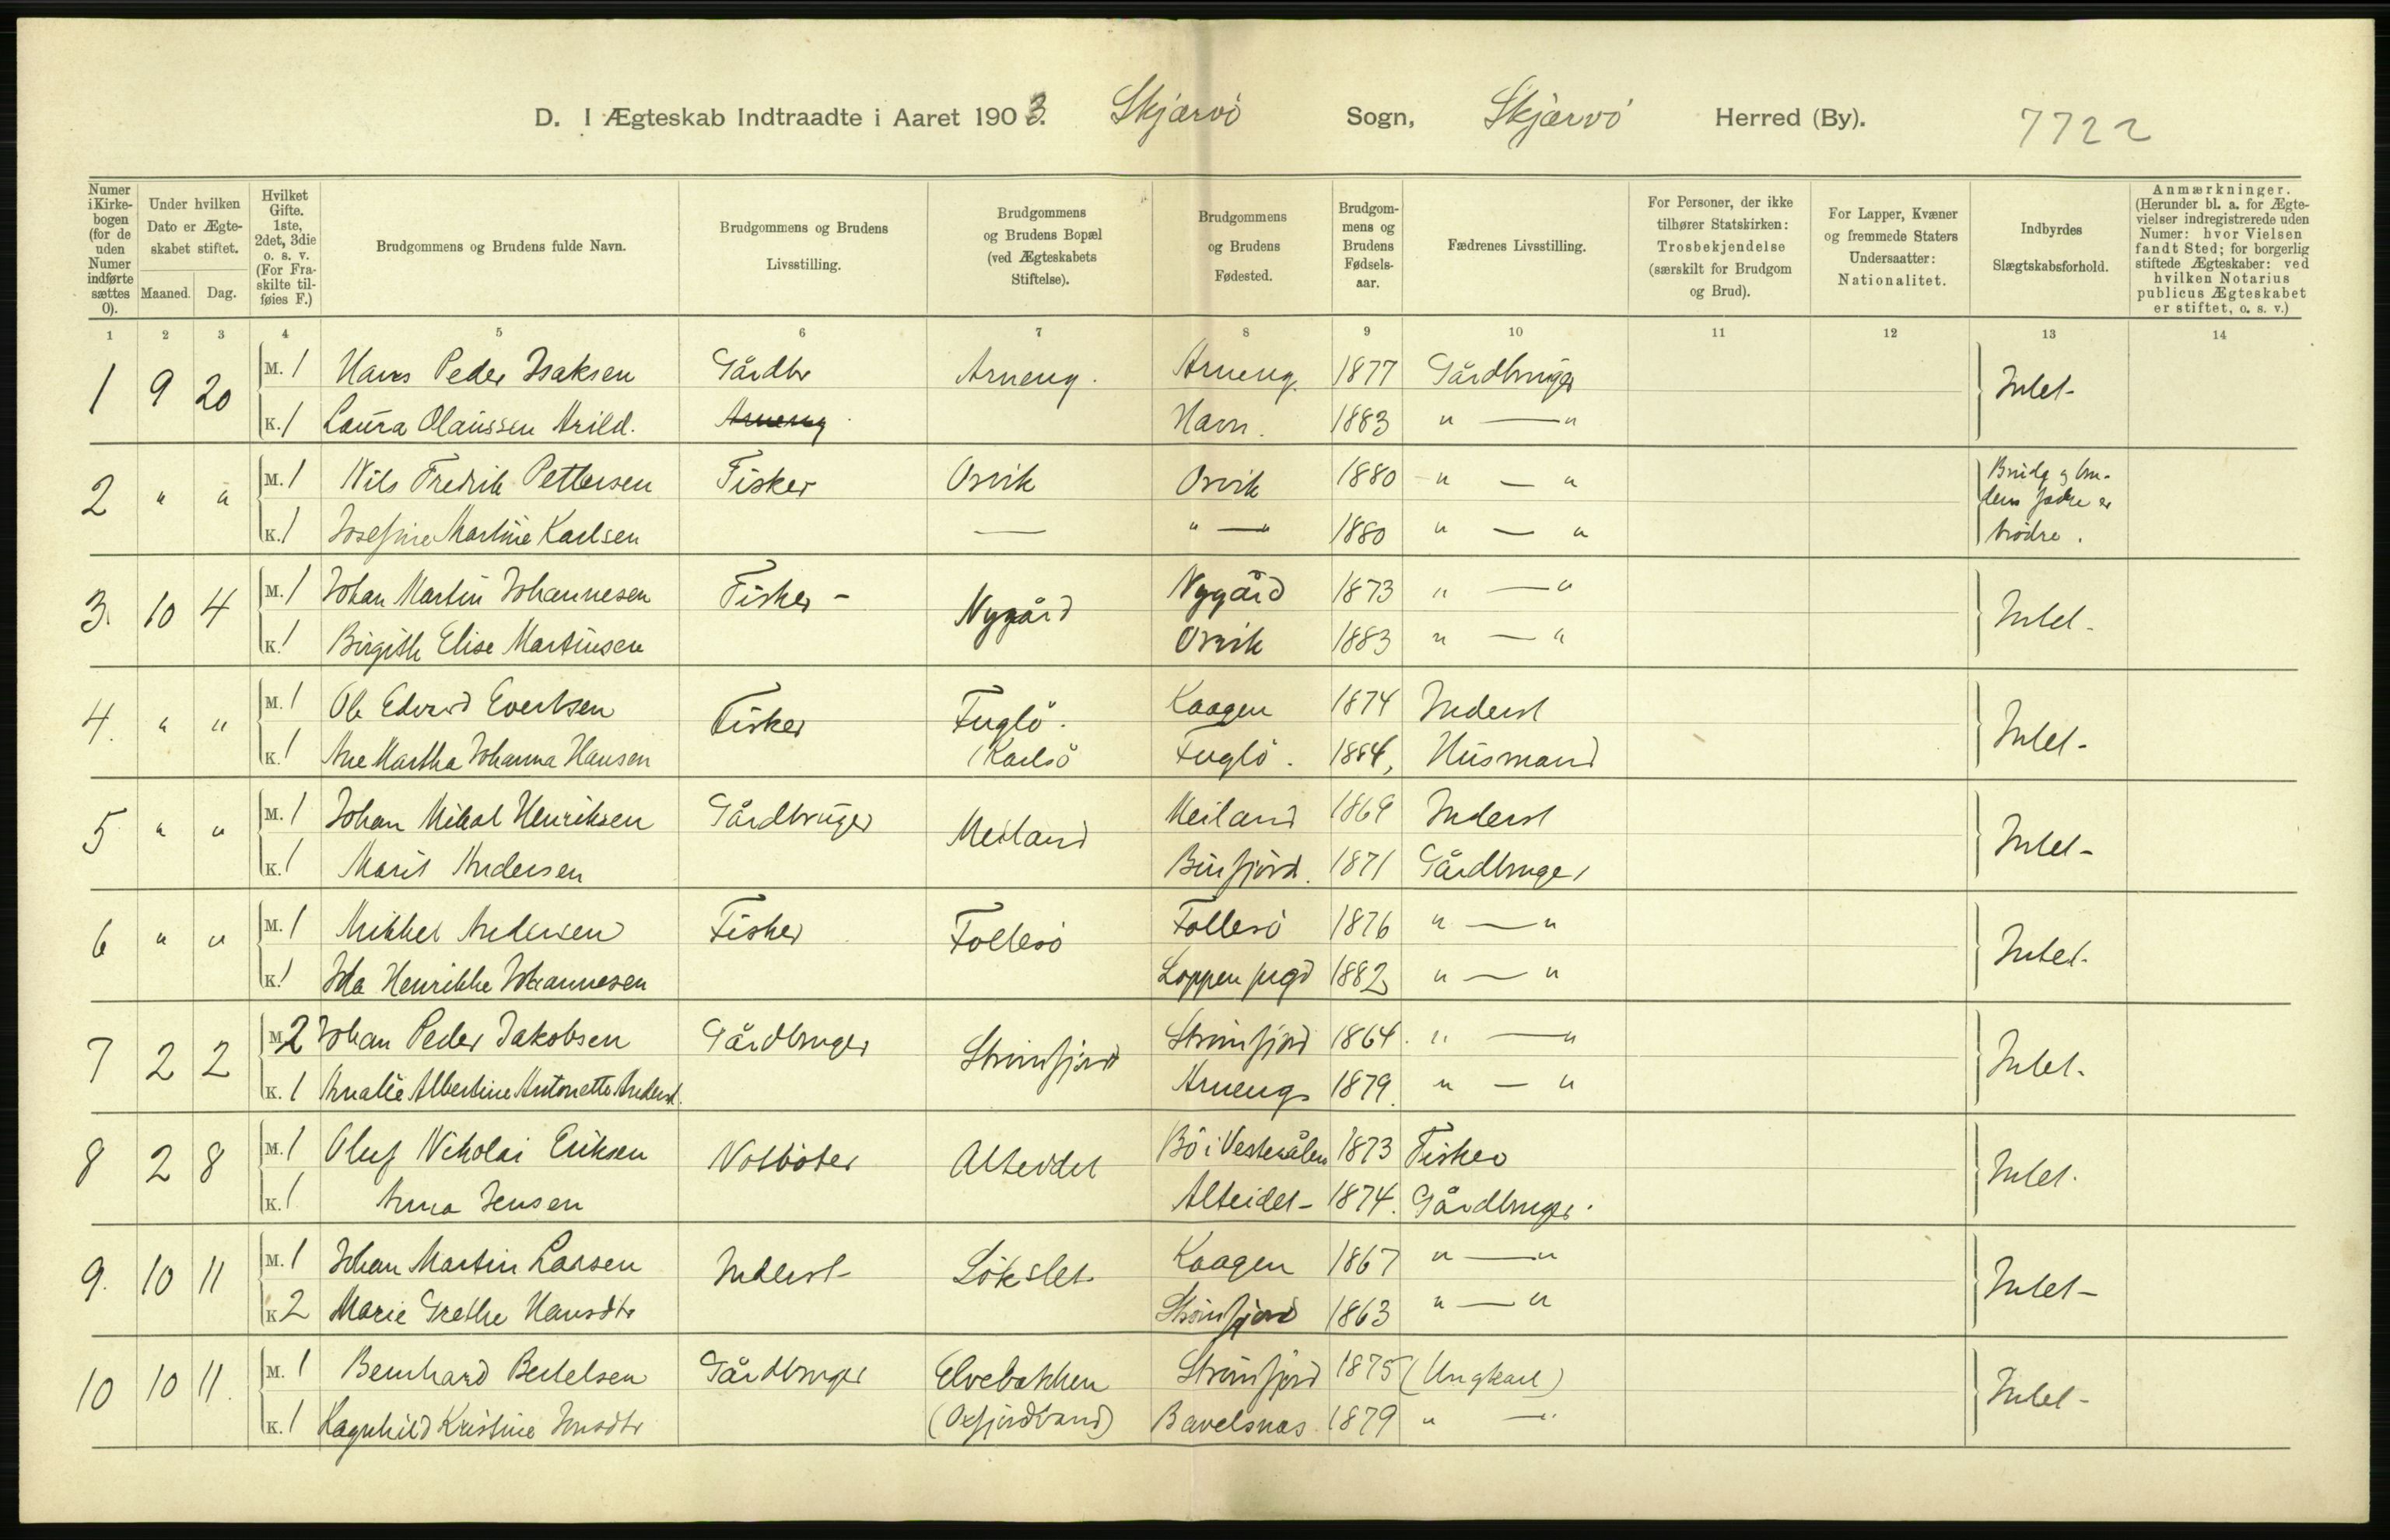 D. I Ægteskab Indtraadte i Aaret 1903. Skjærvö Sogn, Skjærvö Herred (By). 7722
Numer i Kirkebogen (for de uden Numer indførte sættes 0).
Under hvilken Dato er Ægteskabet stiftet.
Maaned. Dag.
Hvilket Gifte. 1ste, 2det, 3die o. s. v. (For Fraskilte tilføies F.)
Brudgommens og Brudens fulde Navn.
Brudgommens og Brudens Livsstilling.
Brudgommens og Brudens Bopæl (ved Ægteskabets Stiftelse).
Brudgommens og Brudens Fødested.
Brudgommens og Brudens Fødselsaar.
Fædrenes Livsstilling.
For Personer, der ikke tilhører Statskirken: Trosbekjendelse (særskilt for Brudgom og Brud).
For Lapper, Kvæner og fremmede Staters Undersaatter: Nationalitet.
Indbyrdes Slægtskabsforhold.
Anmærkninger. (Herunder bl. a. for Ægtevielser indregistrerede uden Numer: hvor Vielsen fandt Sted; for borgerlig stiftede Ægteskaber: ved hvilken Notarius publicus Ægteskabet er stiftet, o. s. v.)
1 2 3 4 5 6 7 8 9 10 11 12 13 14
1 9 20 M. 1 Hans Peder Isaksen Gårdbr Arneng. Arneng. 1877 Gårdbruger Intet-
K. 1 Laura Olaussen Arild. Arneng Havn. 1883 " — "
2 " " M. 1 Nils Fredrik Pettersen Fisker Orvik Orvik 1880 " — " Brudg og brudens fædre er brödre.
K. 1 Josefine Martine Karlsen — " — " 1880 " — "
3. 10 4 M. 1 Johan Martin Johannesen Fisker - Nygård Nygård 1873 " — " Intet-
K. 1 Birgith Elise Martinsen Orvik 1883 " — "
4. " " M. 1 Ole Edvard Evertsen Fisker Fuglö. Kaagen 1874 Inderst Intet-
K. 1 Ane Martha Johanna Hansen (Karlsö Fuglö. 1884, Husmand
5 " " M. 1 Johan Mikal Henriksen Gårdbruger Meiland Meiland 1869 Inderst Intet-
K. 1 Marit Andersen fjörd. 1871 Gårdbruger
6 " " M. 1 Mikkel Andersen Fisker Follesö Follesö 1876 " — " Intet-
K. 1 Ida Henrikke Johannesen Loppen prgd 1882 " — "
7 2 2 M. 2 Johan Peder Jakobsen Gårdbruger Straumfjord Straumfjord 1864. " — " Intet-
K. 1 Amalie Albertine Antonette Anderst. Arneng 1879. " — "
8 2 8 M. 1 Oluf Nikolai Eriksen Notböter Alteidet Bö i Vesterålen 1873 Fisker Intet.
K. 1 Anna Jensen Alteidet- 1874. Gårdbruger.
9. 10 11 M. 1 Johan Martin Larsen Inderst- Lökslet- Kaagen 1867 " — " Intet-
K. 2 Marie Grethe Hansdtr Straumfjord 1863 " — "
10 10 11. M. 1 Bernhard Bertelsen Gårdbruger Elvebakken Straumfjord 1875 (Ungkarl) Intet-
K. 1 Ragnhild Kristine Jensdtr (Oxfjordvand) Bavelsnæs 1879 " — "